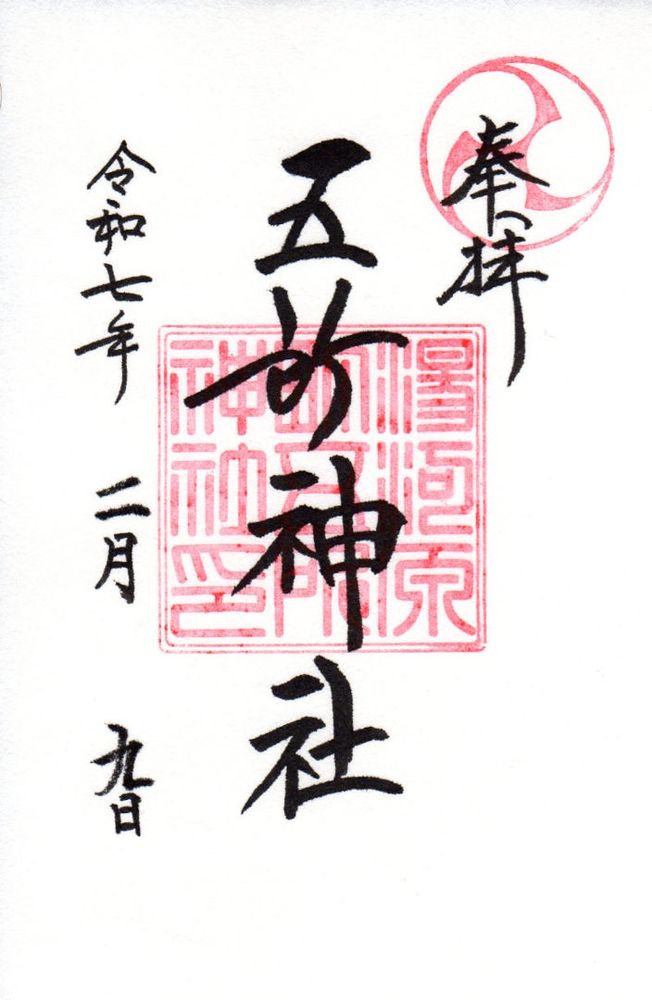 奉拝
五所神社
湯河原
町五所
神社印
令和七年 二月 九日